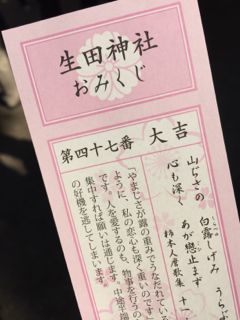 生田神社
おみくじ
第四十七番 大吉
山ぢさの
白露
しげみ
うらぶ
心も深く
あが戀止まず
柿本人麿歌集 十一
「やまじさが露の重みでうなだれてい
ように、私の恋心も深く重いのです
です。人を愛するのも、物事を行うの
集中すれば願いは通じます。中途半端
の好機を逃してしまいます。